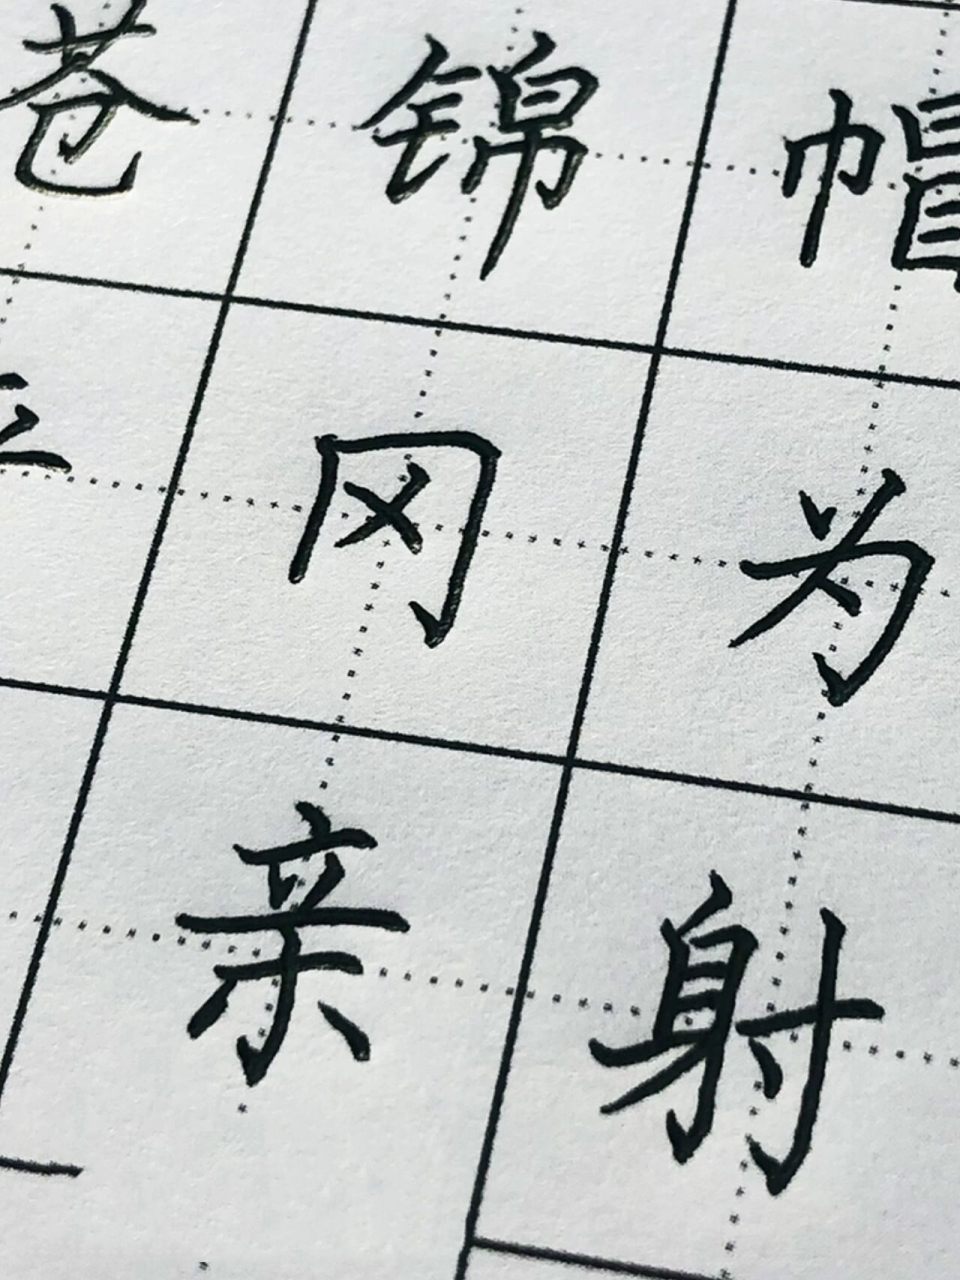 苍锦帽
冈为
亲射